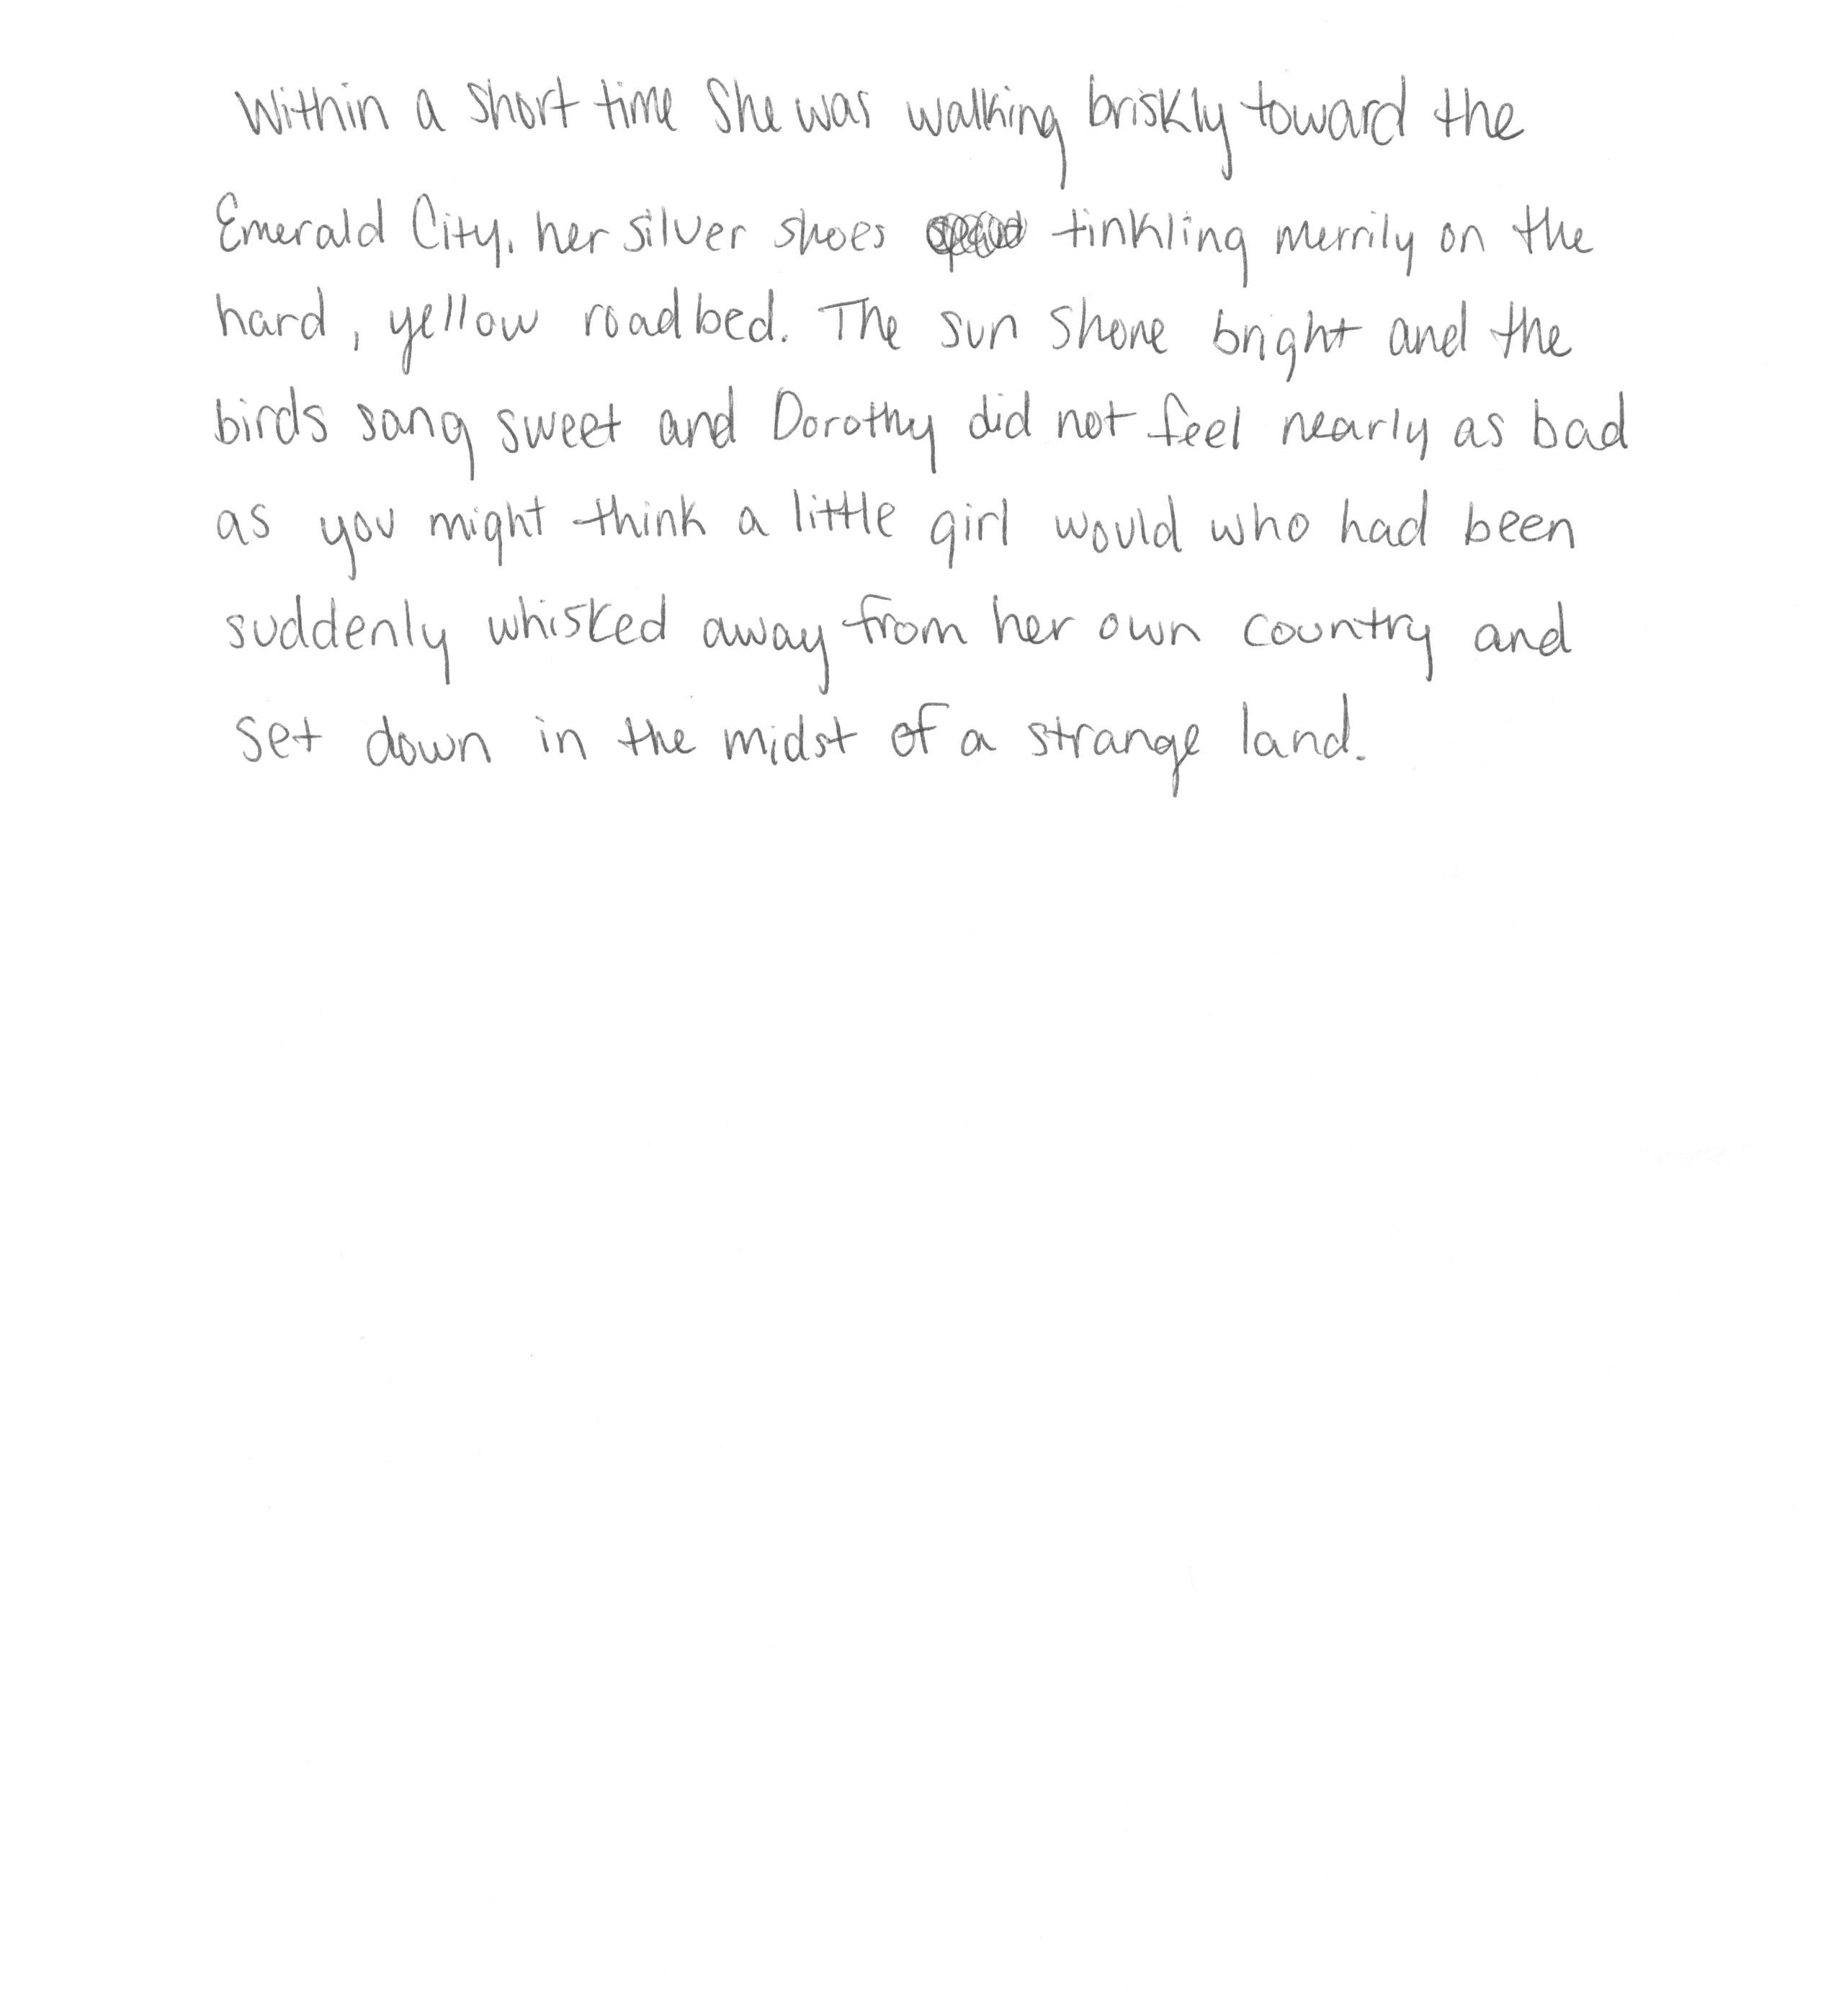 Within a short time She was walking briskly toward the
Emerald City, her silver shoes tinkling merrily on the
hard, yellow roadbed. The sun shone bright and the
birds sang sweet and Dorothy did not feel nearly as bad
as you might think a little girl would who had been
suddenly whisked away from her own country and
set down in the midst of a strange land.